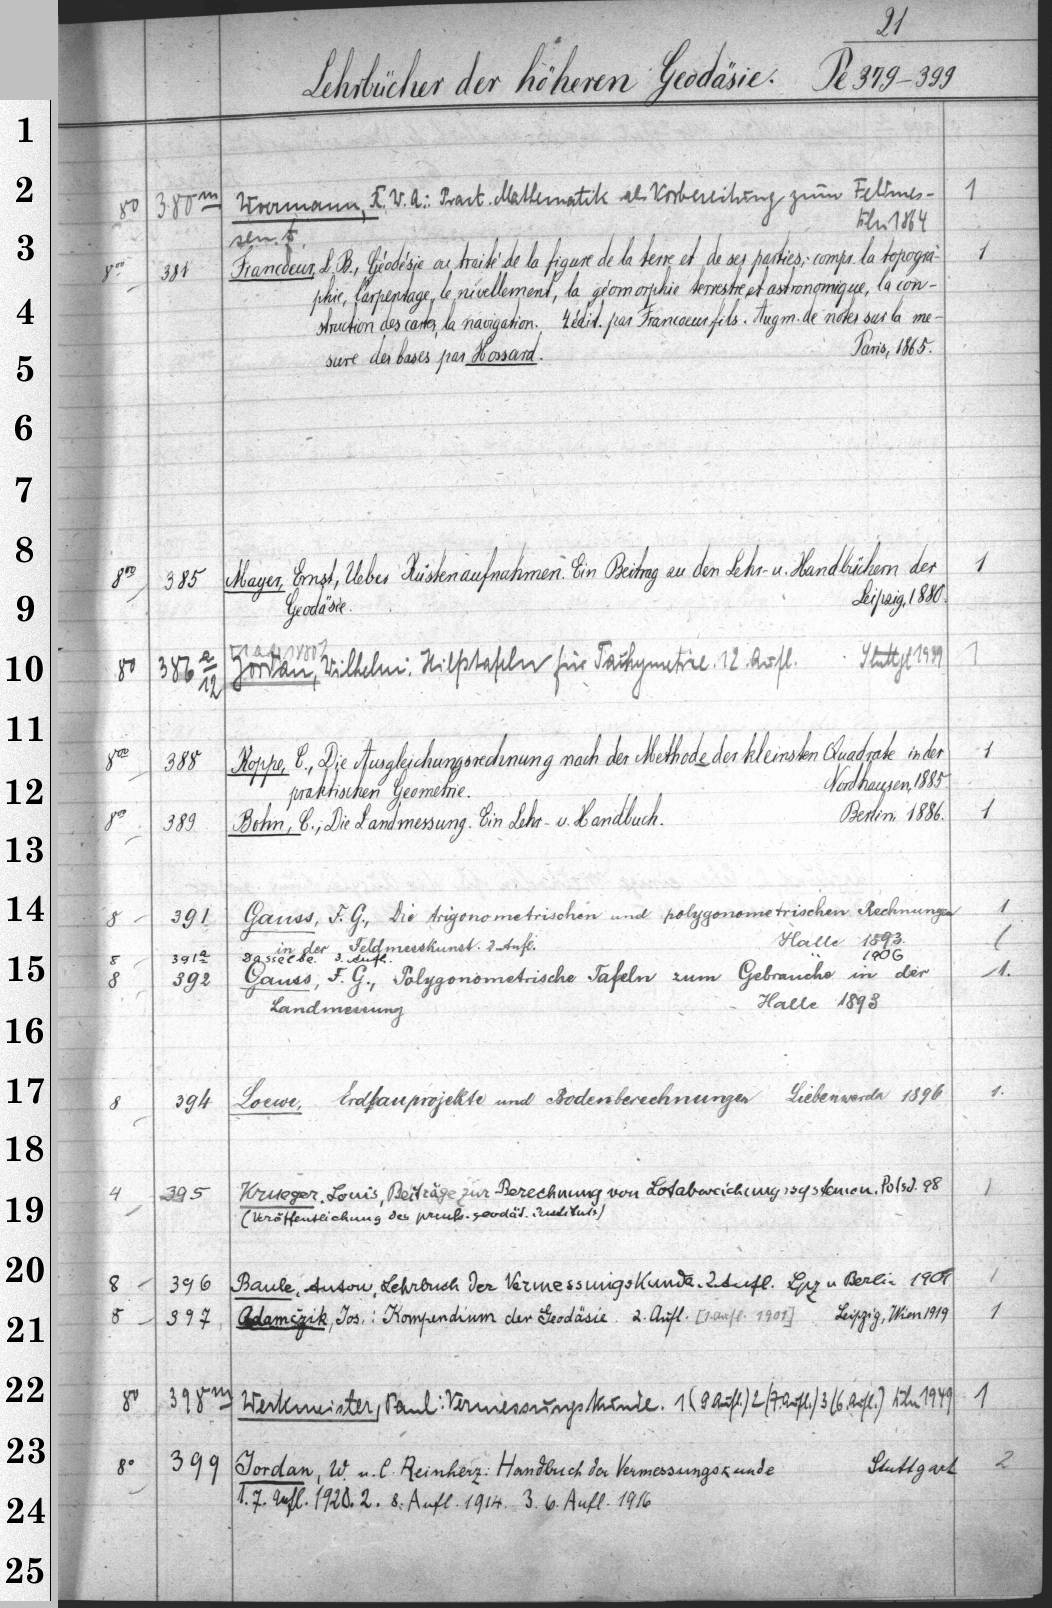 21
Lehrbücher der höheren Geodäsie. Pe 379-399
1
2
3
4
5
6
7
8
9
10
11
12
13
14
15
16
17
18
19
20
21
22
23
24
25
80 380 m Woermann, K. W. A.: Pract. Mathematik als Vorbereitung zum Feldmes- 1
sen. 1864
8vo 381 Francoeur, L. B., Géodésie ou traité de la figure de la terre et de ses parties, compr. la topogra- 1
phie, l'arpentage, le nivellement, la géomorphie terrestre et astronomique, la con-
struction des cartes, la navigation. 4 édit. par Francoeur fils. Augm. de notes sur la me-
sure des bases par Hossard. Paris, 1865.
8vo 385 Mayer, Ernst, Ueber Küstenaufnahmen. Ein Beitrag zu den Lehr- u. Handbüchern der 1
Geodäsie. Leipzig, 1880.
80 386 a/12 Jordan, Wilhelm: Hilfstafeln für Tachymetrie. 12. Aufl. Stuttg. 1
8vo 388 Koppe, C., Die Ausgleichungsrechnung nach der Methode der kleinsten Quadrate in der 1
praktischen Geometrie. Nordhausen, 1885
8vo 389 Bohn, C., Die Landmessung. Ein Lehr- u. Handbuch. Berlin, 1886. 1
8 391 Gauss, F. G., Die trigonometrischen und polygonometrischen Rechnungen 1
in der Feldmesskunst. 2. Aufl. Halle 1893.
8 391a Dasselbe. 3. Aufl. 1906
8 392 Gauss, F. G., Polygonometrische Tafeln zum Gebrauche in der 1.
Landmessung Halle 1893
8 394 Loewe, Erdbauprojekte und Bodenberechnungen Liebenwerda 1896 1.
4 395 Krueger, Louis, Beiträge zur Berechnung von Lotabweichungssystemen. Potsd. 98 1
(Veröffentlichung des preuß. geodät. Instituts)
8 396 Baule, Anton, Lehrbuch der Vermessungskunde. 2. Aufl. Lpz u Berlin 1901 1
8 397 Adamczik, Jos.: Kompendium der Geodäsie 2. Aufl. [1. Aufl. 1901] Leipzig, Wien 1919 1
80 398 m Werkmeister, Paul: Vermessungskunde. 1 (9 Aufl.) 2 (7. Aufl.) 3 (6. Aufl.) Bln 1949 1
8° 399 Jordan, W. u. C. Reinherz: Handbuch der Vermessungskunde Stuttgart 2
1. 7. Aufl. 1920. 2. 8. Aufl. 1914. 3. 6. Aufl. 1916